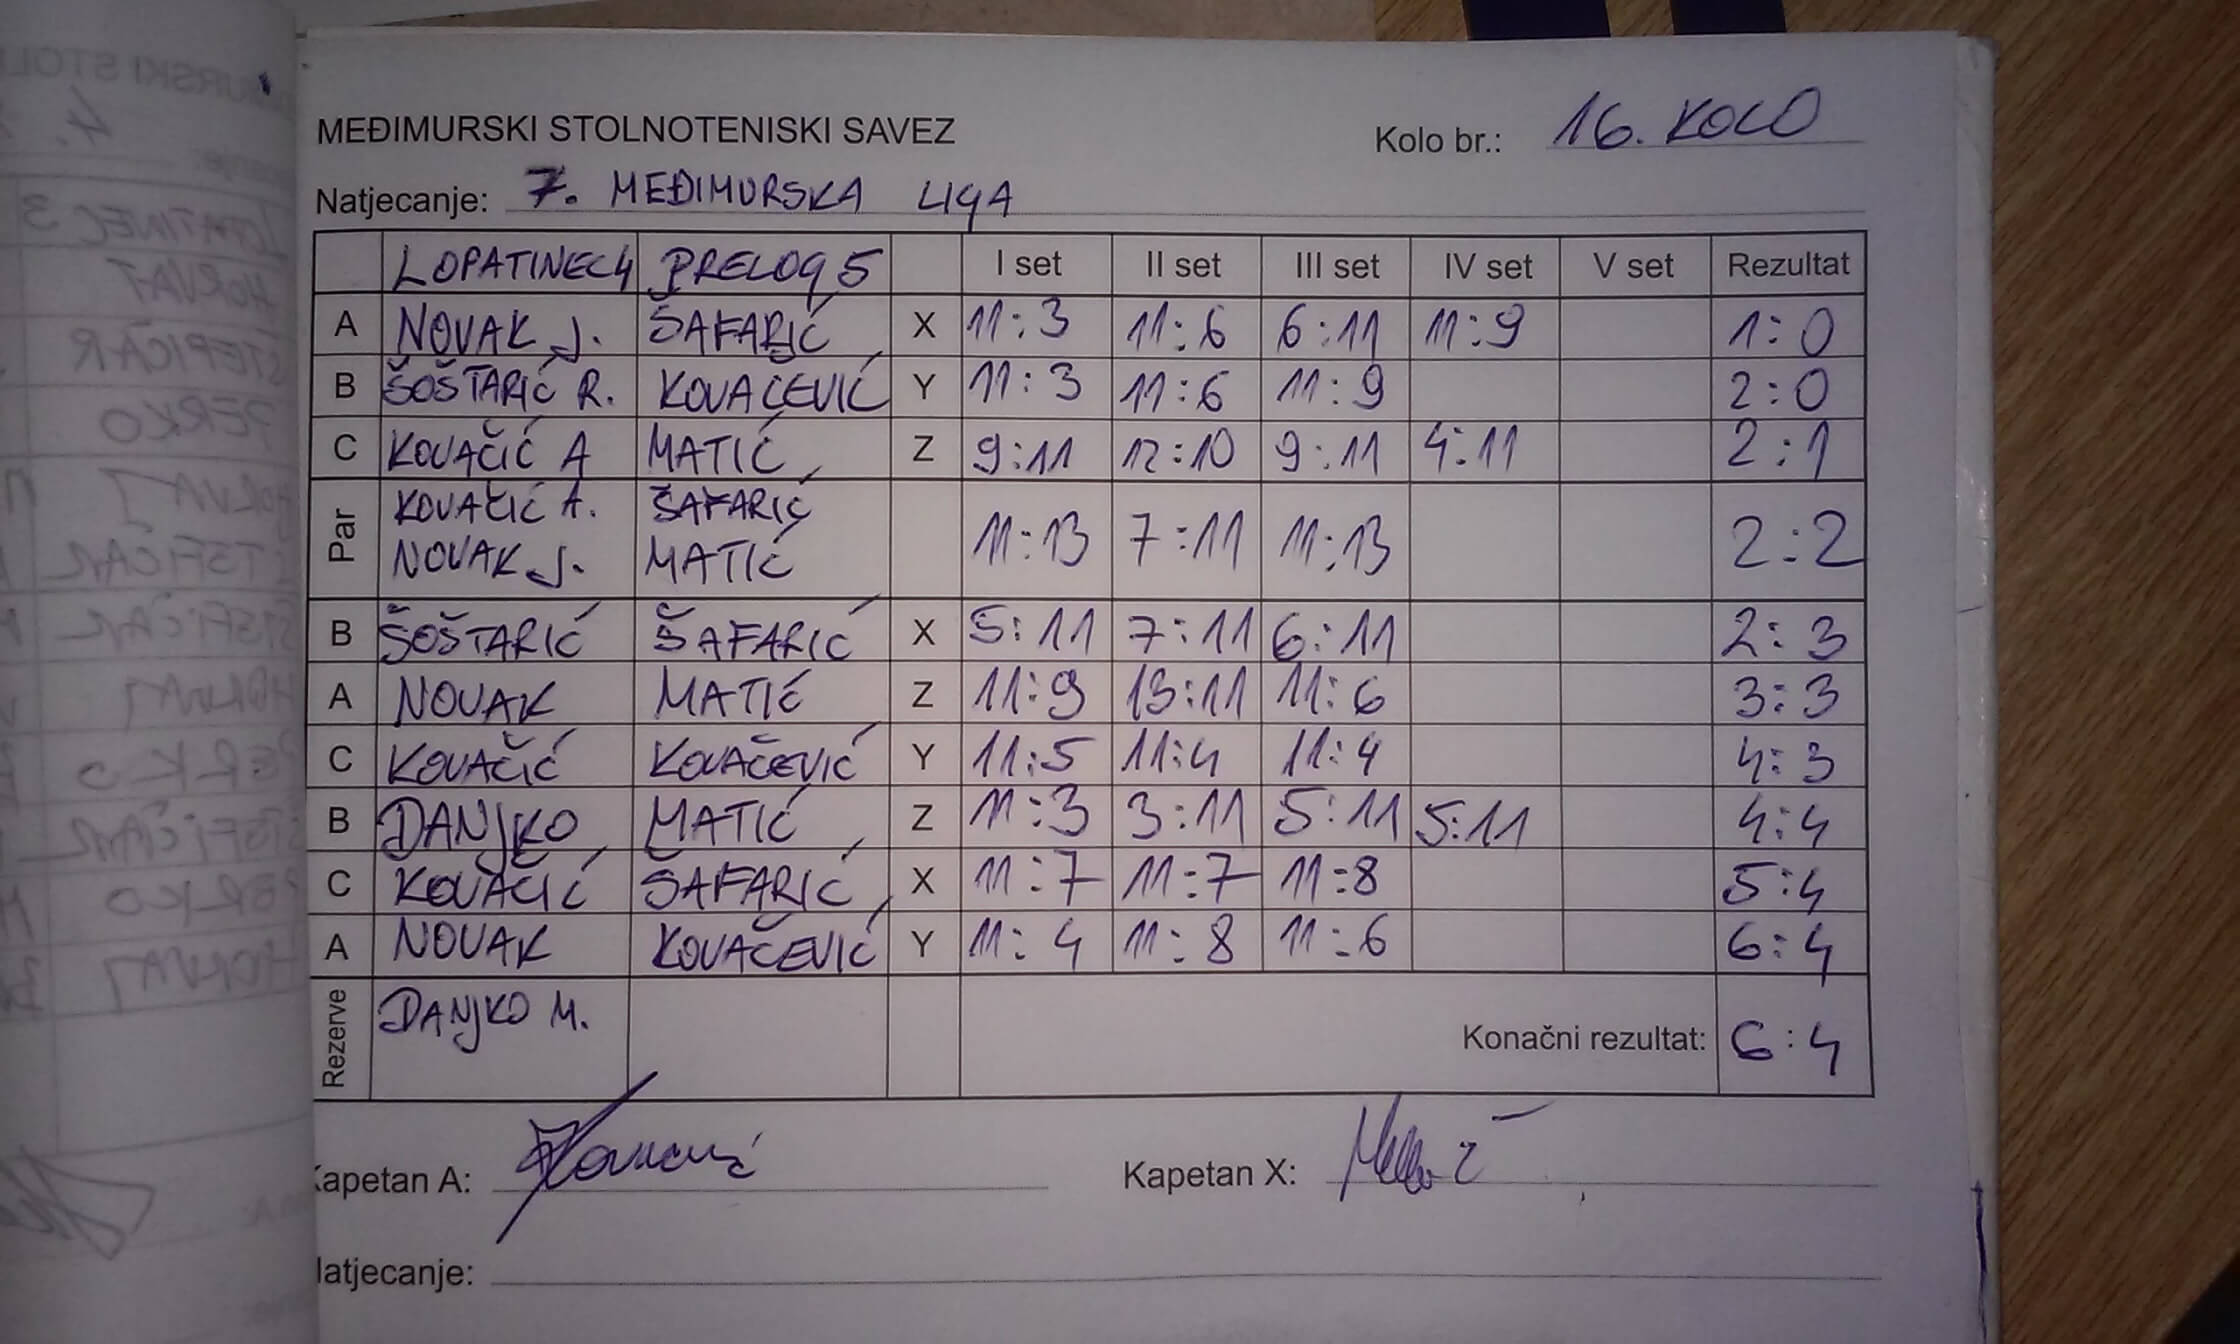 MEĐIMURSKI STOLNOTENISKI SAVEZ
Kolo br.: 16. KOLO
Natjecanje: 7. MEĐIMURSKA LIGA
LOPATINEC 4 PRELOG 5 I set II set III set IV set V set Rezultat
A NOVAK J. ŠAFARIĆ X 11:3 11:6 6:11 11:9 1:0
B ŠOŠTARIĆ R. KOVAČEVIĆ Y 11:3 11:6 11:9 2:0
C KOVAČIĆ A MATIĆ Z 9:11 12:10 9:11 4:11 2:1
Par KOVAČIĆ A. ŠAFARIĆ
NOVAK J. MATIĆ 11:13 7:11 11:13 2:2
B ŠOŠTARIĆ ŠAFARIĆ X 5:11 7:11 6:11 2:3
A NOVAK MATIĆ Z 11:9 13:11 11:6 3:3
C KOVAČIĆ KOVAČEVIĆ Y 11:5 11:4 11:4 4:3
B DANJKO MATIĆ Z 11:3 3:11 5:11 5:11 4:4
C KOVAČIĆ ŠAFARIĆ X 11:7 11:7 11:8 5:4
A NOVAK KOVAČEVIĆ Y 11:4 11:8 11:6 6:4
Rezerve DANJKO M. Konačni rezultat: 6:4
Kapetan A: Kapetan X:
Natjecanje: